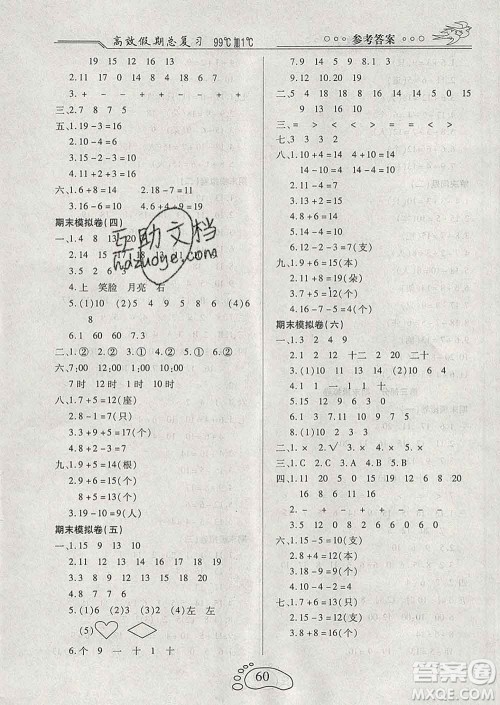 高效假期总复习 99℃加1℃
参考答案
19 13 15 12
2.11 17 5 16 8 12 8
3.+ - + - - + -
三、5 11 8 7 7 5
五、1.19-3=16
2.10-4=6
3.15-3=12
六、1.6+8=14 2.18-7=11
3.16-6=10 4.6+4+9=19
期末模拟卷(四)
一、1.4 8 13 20
2.17 15
3.15 2 5 6
4.上 笑脸 月亮 右
5.(1)0 2 (2)5 (3)5 (4)6
8
二、1.② 2.① 3.② 4.① 5.①
六、7:00 1:00 10:00
7时 12时 1时 10时
八、1.7+5=12(座)
2.8-1=7(只)
3.3+9+5=17(个)
九、1.9+5=14(根)
2.9+6=15(个)
8+5=13(个)
3.10-9=1(个)
期末模拟卷(五)
一、1.15 9 13 10
2.17
3.12 8 7 1 8 9
4.18 7
5.(1)6 (2)4 (3)5 (4)左 左
(5)
6.个 9 一 十 1 十
7.9 15
8.10 5
二、5 4 18 8 18 9 14 5 0 15
9 13 10 14
三、= < = > < > > <
七、3 3 3 2
八、1.10+4=14
2.10-4=6
3.4+10=14
4.18-7=11
5.19-7=12(支)
九、1.11+7=18(朵)
2.11-7=4(朵)
3.9+5=14(个)
期末模拟卷(六)
一、1.3 2 4 9
2.11 2 12 十二 二 二十
3.16
4.1 一 1 十
5.15 12 9 13 5 6
6.9
7.18 7
8.(1)10 (2)9 (3)8
二、1.× 2.√ 3.× 4.×
三、1.② 2.② 3.②
四、16 11 19 12 10 6 8 20
1 16
五、8 12 8 13 17 15 2
六、1.9+6=15(本)
2.8-5=3(本)
3.18-9=9(支)
4.10-2=8(个)
七、1.7+6=13(只)
2.10-4=6(个)
3.2+9=11(个)
60
互助文档
hdzuoye.com
答案圈
MXQE.COM